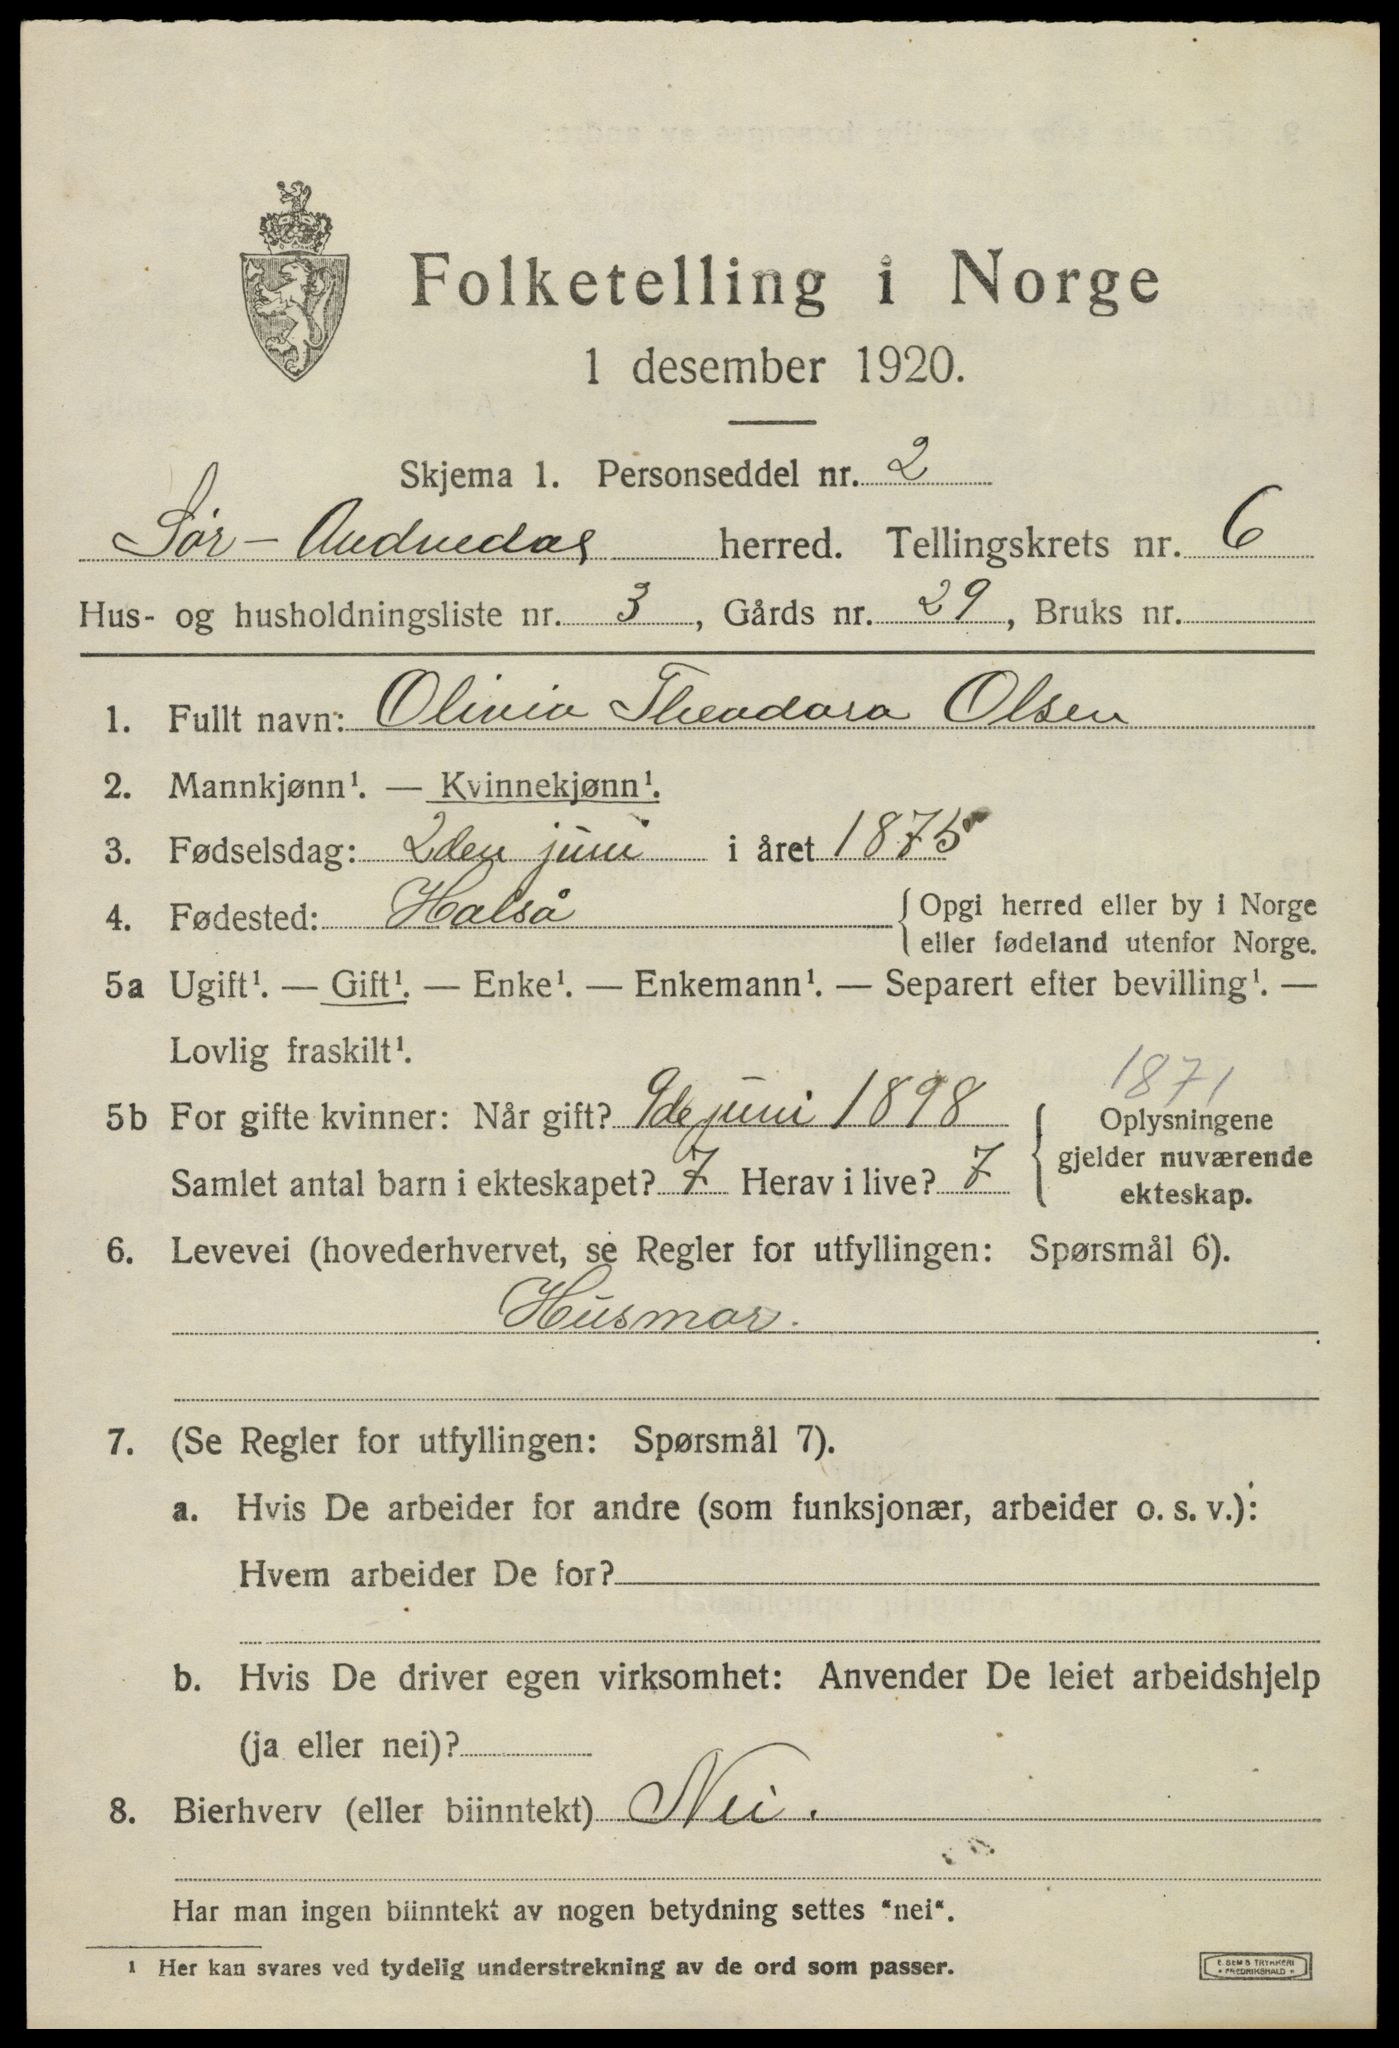 Folketelling i Norge
1 desember 1920.
Skjema 1. Personseddel nr. 2
Sør-Audnedal herred. Tellingskrets nr. 6
Hus- og husholdningsliste nr. 3, Gårds nr. 29, Bruks nr.
1. Fullt navn: Olivia Theodora Olsen
2. Mannkjønn¹. — Kvinnekjønn¹.
3. Fødselsdag: 2den juni i året 1875
4. Fødested: Halså { Opgi herred eller by i Norge
eller fødeland utenfor Norge.
5a Ugift¹. — Gift¹. — Enke¹. — Enkemann¹. — Separert efter bevilling¹. —
Lovlig fraskilt¹.
1871
5b For gifte kvinner: Når gift? 9de juni 1898
Samlet antal barn i ekteskapet? 7 Herav i live? 7
{ Oplysningene
gjelder nuværende
ekteskap.
6. Levevei (hovederhvervet, se Regler for utfyllingen: Spørsmål 6).
Husmor.
7. (Se Regler for utfyllingen: Spørsmål 7).
a. Hvis De arbeider for andre (som funksjonær, arbeider o. s. v.):
Hvem arbeider De for?
b. Hvis De driver egen virksomhet: Anvender De leiet arbeidshjelp
(ja eller nei)?
8. Bierhverv (eller biinntekt) Nei.
Har man ingen biinntekt av nogen betydning settes "nei".
¹ Her kan svares ved tydelig understrekning av de ord som passer.
E. SEMS TRYKKERI
FREDRIKSHALD